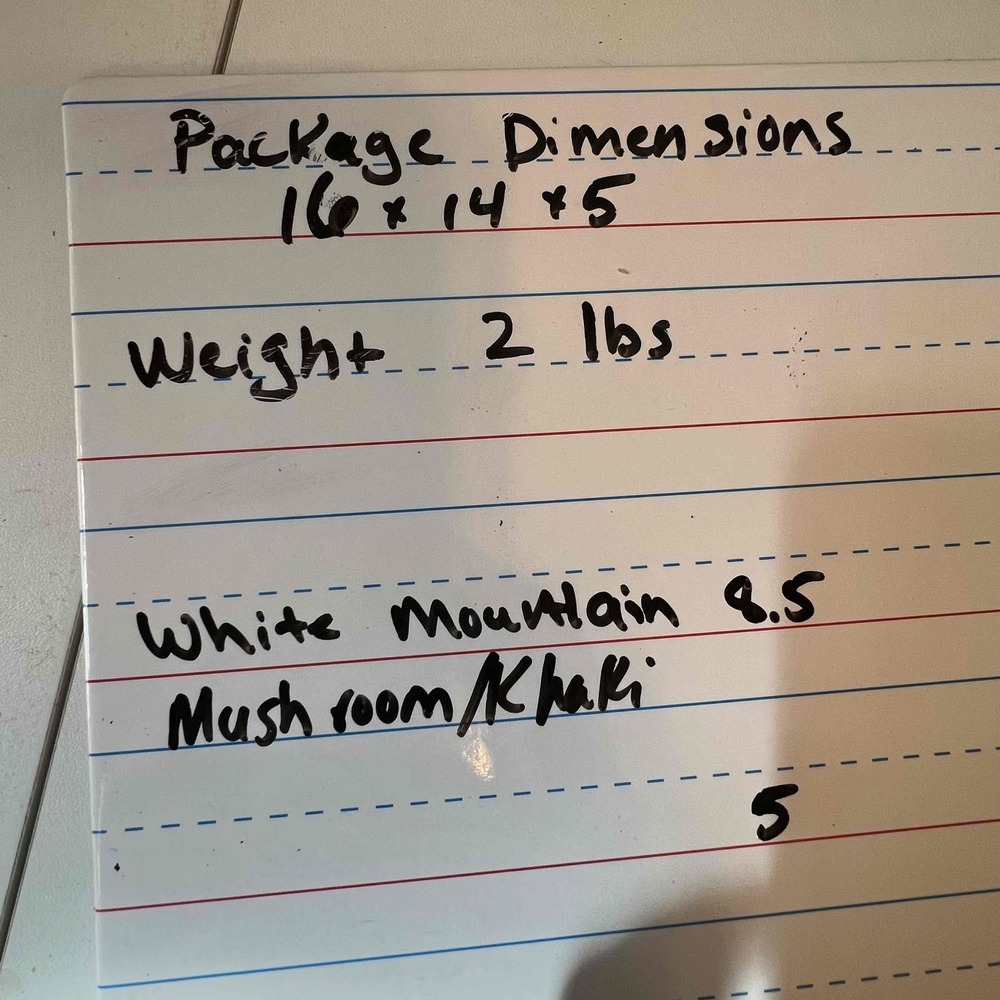 Package Dimensions
16 x 14 x 5
Weight 2 lbs
White Mountain 8.5
Mushroom/Khaki
5